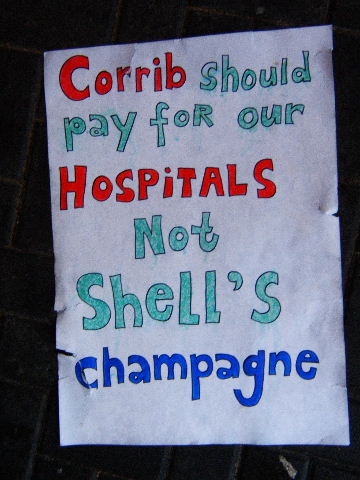 Corrib should
pay foR our
HOSPiTALS
Not
Shell's
champagne